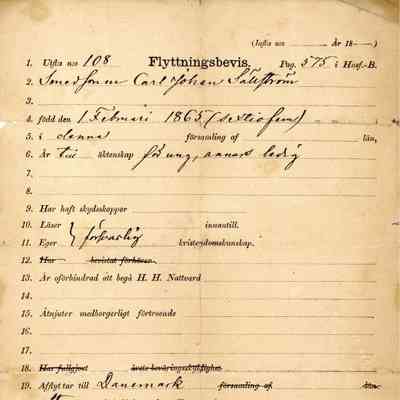 (Infta n:o År 18 )
1. Utfta n:o 108 Flyttningsbevis. Pag. 575 i Husf.-B.
2. Smedsonen Carl Johan Sällström
3.
4. född den 1 Februari 1865 (sextiofem)
5. i denna församling af län,
6. Är till äktenskap för ung, annars ledig
7.
8.
9. Har haft skyddskoppor
10. Läser innantill.
försvarlig
11. Eger kristendomskunskap.
12. Har bevistat förhören.
13. Är oförhindrad att begå H. H. Nattvard
14.
15. Åtnjuter medborgerligt förtroende
16.
17.
18. Har fullgjort årets beväringsskyldighet
19. Afflyttar till Danemark församling af län.